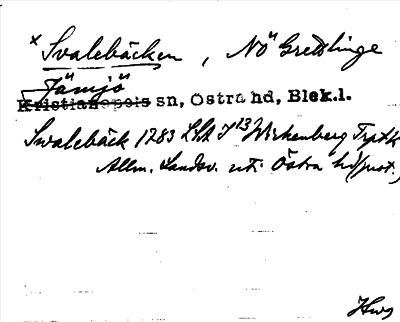 x Svalebäcken, NÖ Gredslinge
Jämjö
Kristianopels sn, Östra hd, Blek.l.
Swalebäck 1783 LSA J13 Wirkenberg
Allm. Landsv. Östra hd (just.)
Hwg